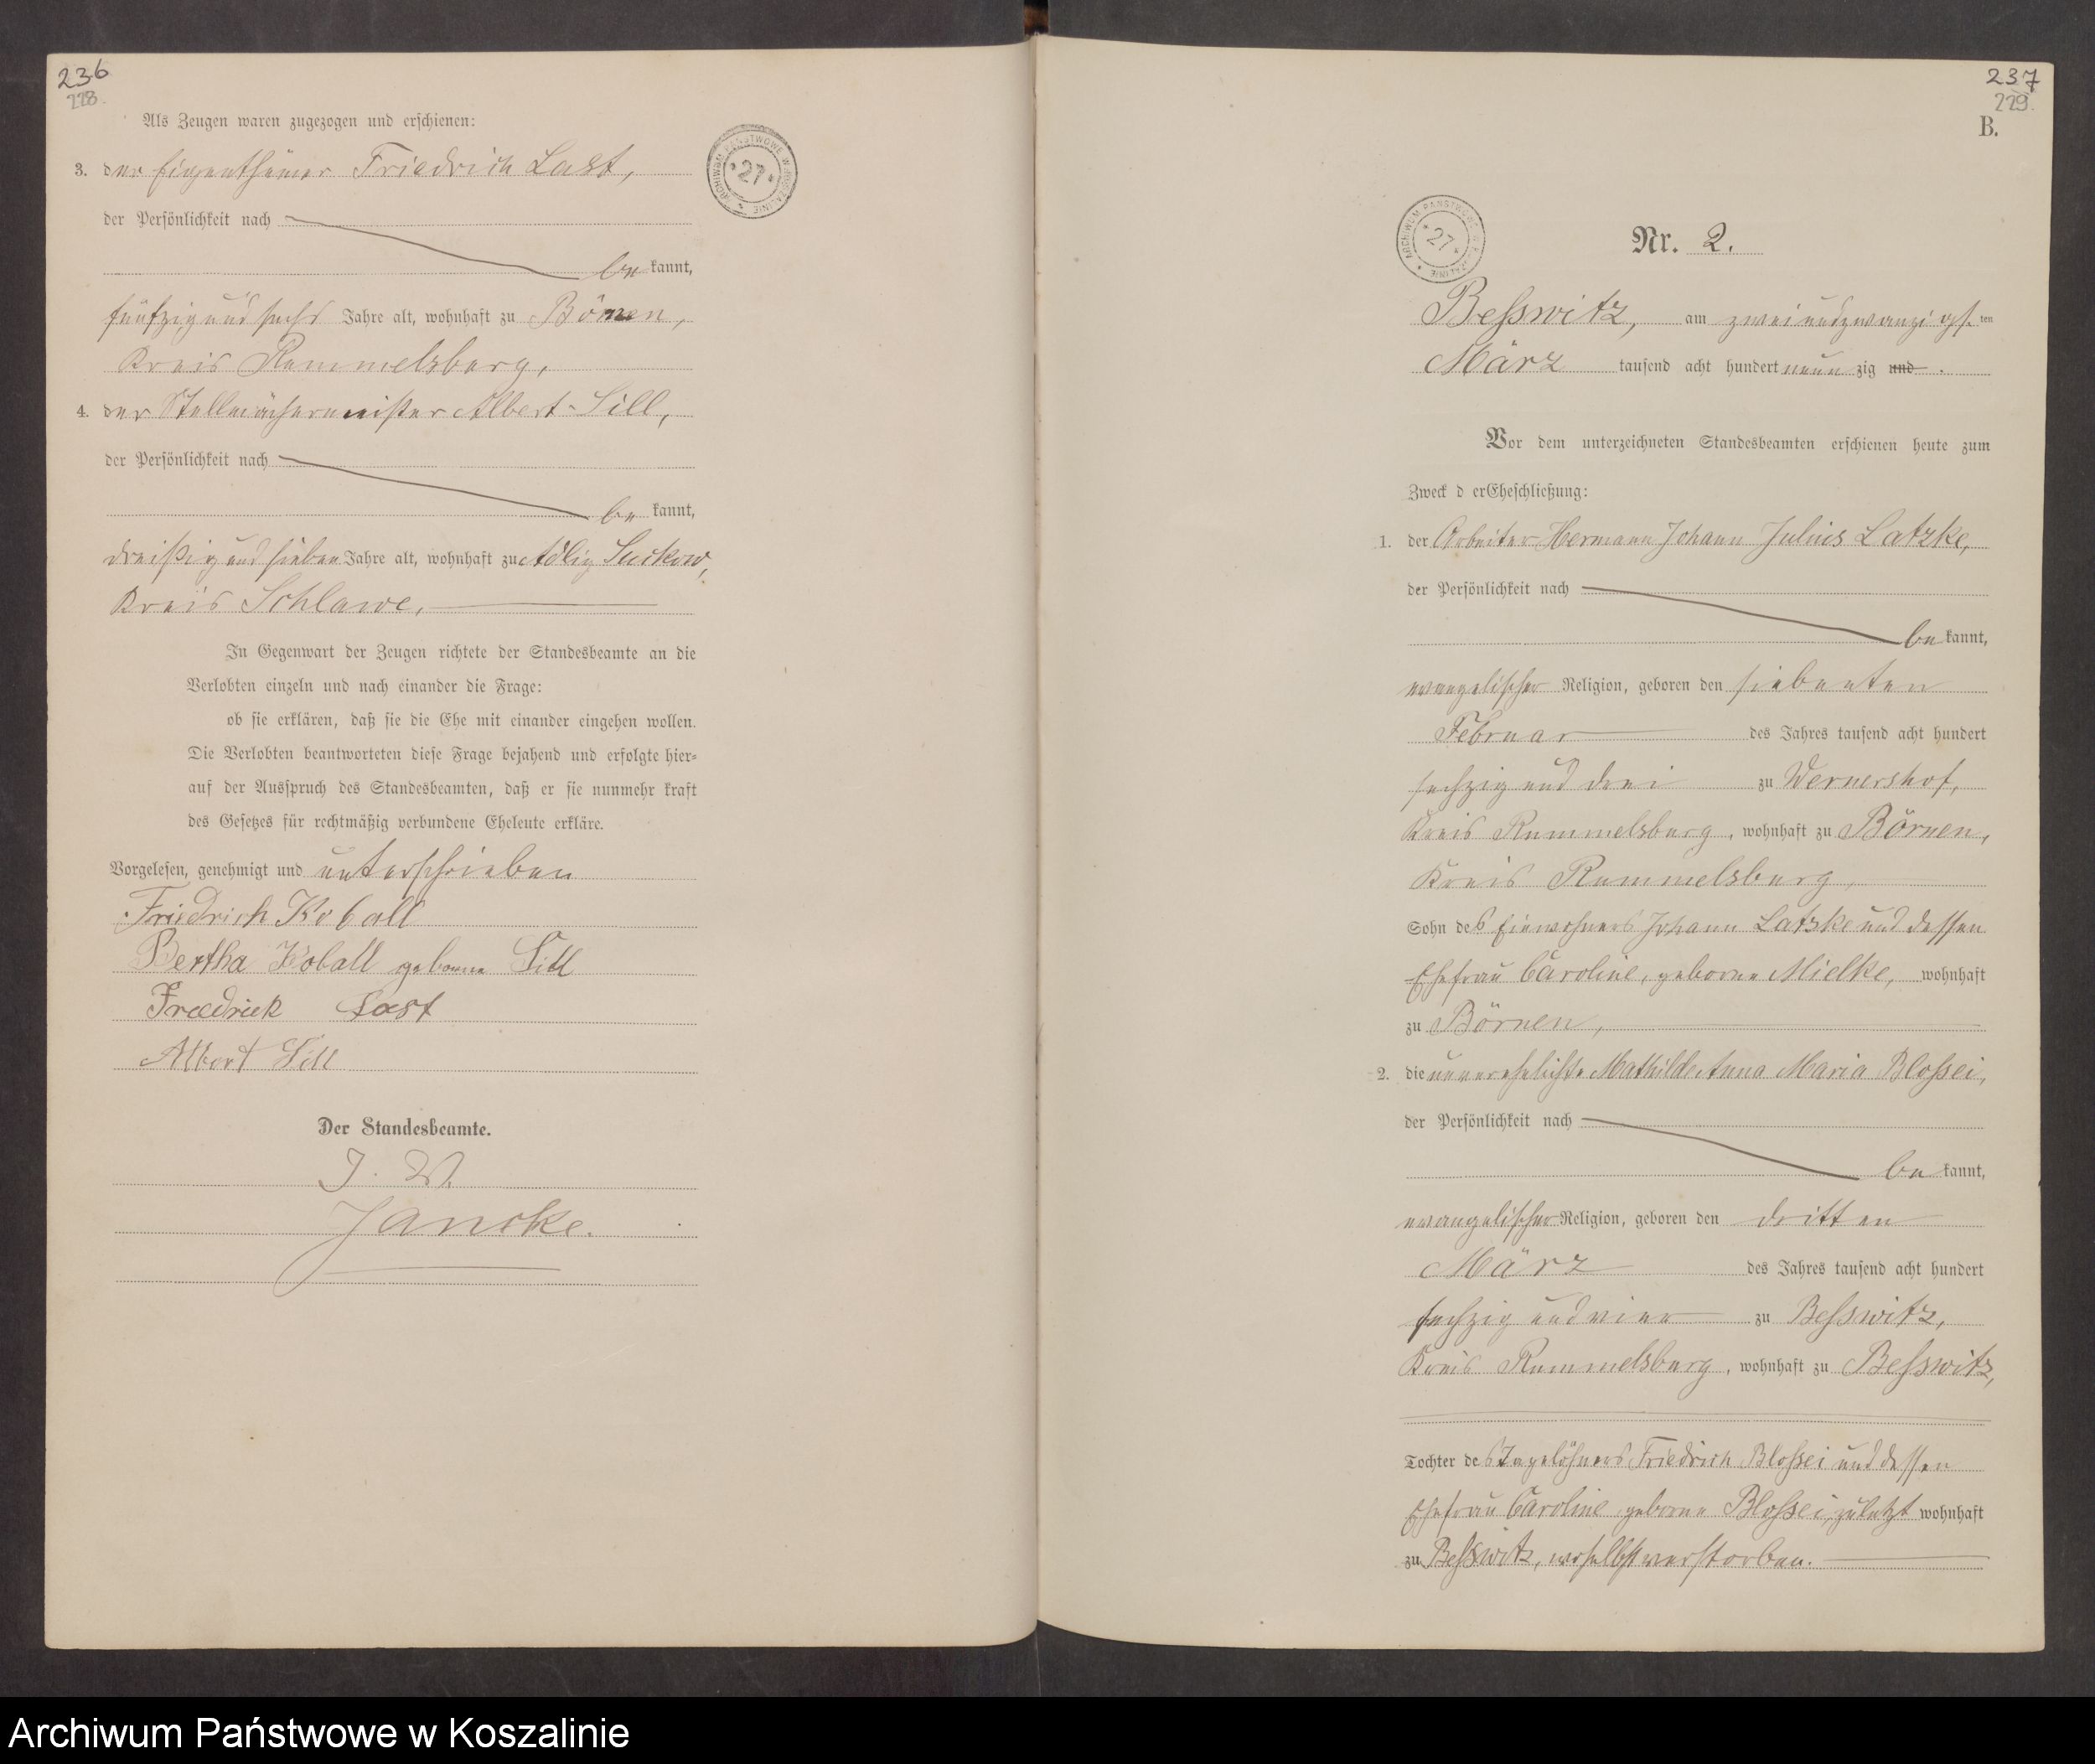 236
228.
Als Zeugen waren zugezogen und erschienen:
3. der Eigenthümer Friedrich Last,
der Persönlichkeit nach
be kannt,
fünfzig und sechs Jahre alt, wohnhaft zu Börnen,
Kreis Rummelsburg,
4. der Stellmachermeister Albert Sill,
der Persönlichkeit nach
be kannt,
dreißig und sieben Jahre alt, wohnhaft zu Adlig Suckow,
Kreis Schlawe,
In Gegenwart der Zeugen richtete der Standesbeamte an die
Verlobten einzeln und nach einander die Frage:
ob sie erklären, daß sie die Ehe mit einander eingehen wollen.
Die Verlobten beantworteten diese Frage bejahend und erfolgte hier-
auf der Ausspruch des Standesbeamten, daß er sie nunmehr kraft
des Gesetzes für rechtmäßig verbundene Eheleute erkläre.
Vorgelesen, genehmigt und unterschrieben
Friedrich Koball
Bertha Koball geborne Sill
Friedrick Last
Albert Sill
Der Standesbeamte.
J. V.
Jancke.
ARCHIWUM PAŃSTWOWE W KOSZALINIE
* 27 *
237
229.
B.
ARCHIWUM PAŃSTWOWE W KOSZALINIE
* 27 *
Nr. 2.
Beßwitz, am zweiundzwanzigs ten
März tausend acht hundert neun zig und .
Vor dem unterzeichneten Standesbeamten erschienen heute zum
Zweck d er Eheschließung:
1. der Arbeiter Hermann Johann Julius Latzke,
der Persönlichkeit nach
be kannt,
evangelischer Religion, geboren den siebenten
Februar des Jahres tausend acht hundert
sechzig und drei zu Wernershof,
Kreis Rummelsburg, wohnhaft zu Börnen,
Kreis Rummelsburg,
Sohn des Einwohners Johann Latzke und dessen
Ehefrau Caroline, geborne Mielke, wohnhaft
zu Börnen,
2. die unverehelichte Mathilde Anna Maria Bloßei,
der Persönlichkeit nach
be kannt,
evangelischer Religion, geboren den dritten
März des Jahres tausend acht hundert
sechzig und vier zu Beßwitz,
Kreis Rummelsburg, wohnhaft zu Beßwitz,
Tochter des Tagelöhners Friedrich Bloßei und dessen
Ehefrau Caroline geborne Bloßei, zuletzt wohnhaft
zu Beßwitz, woselbst verstorben.
Archiwum Państwowe w Koszalinie